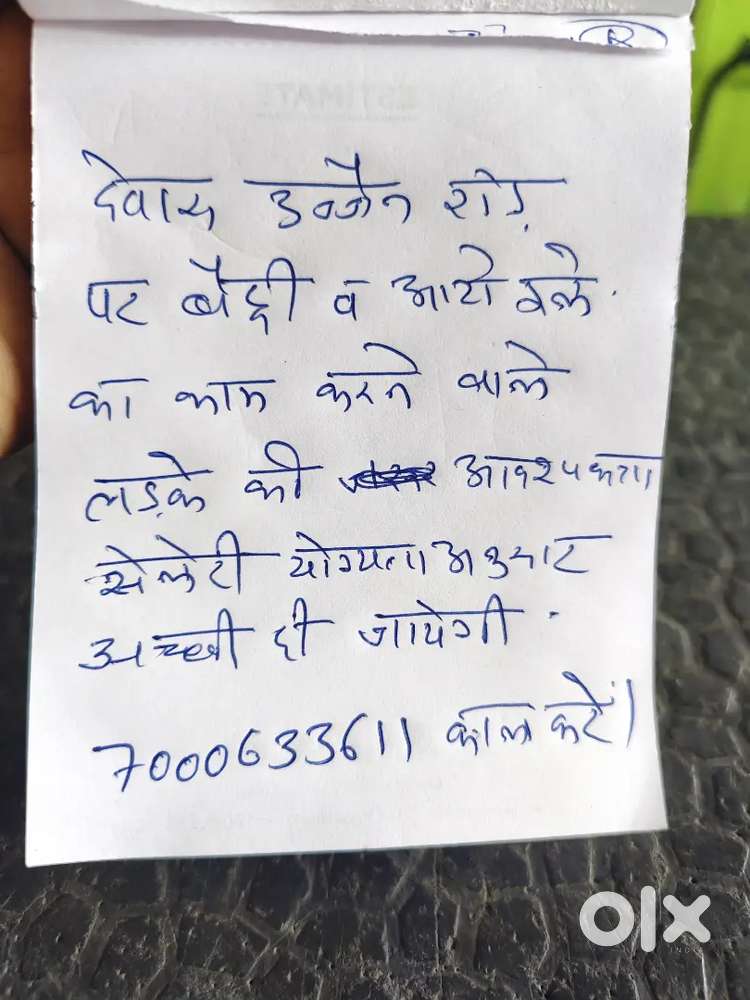 ESTIMATE
देवास उज्जैन रोड़
पर बैट्री व आटो वाले
का काम करने वाले
लड़के की आवश्यकता
सेलेरी योग्यता अनुसार
अच्छी दी जायेगी.
7000633611 काल करें।
olx
INDIA